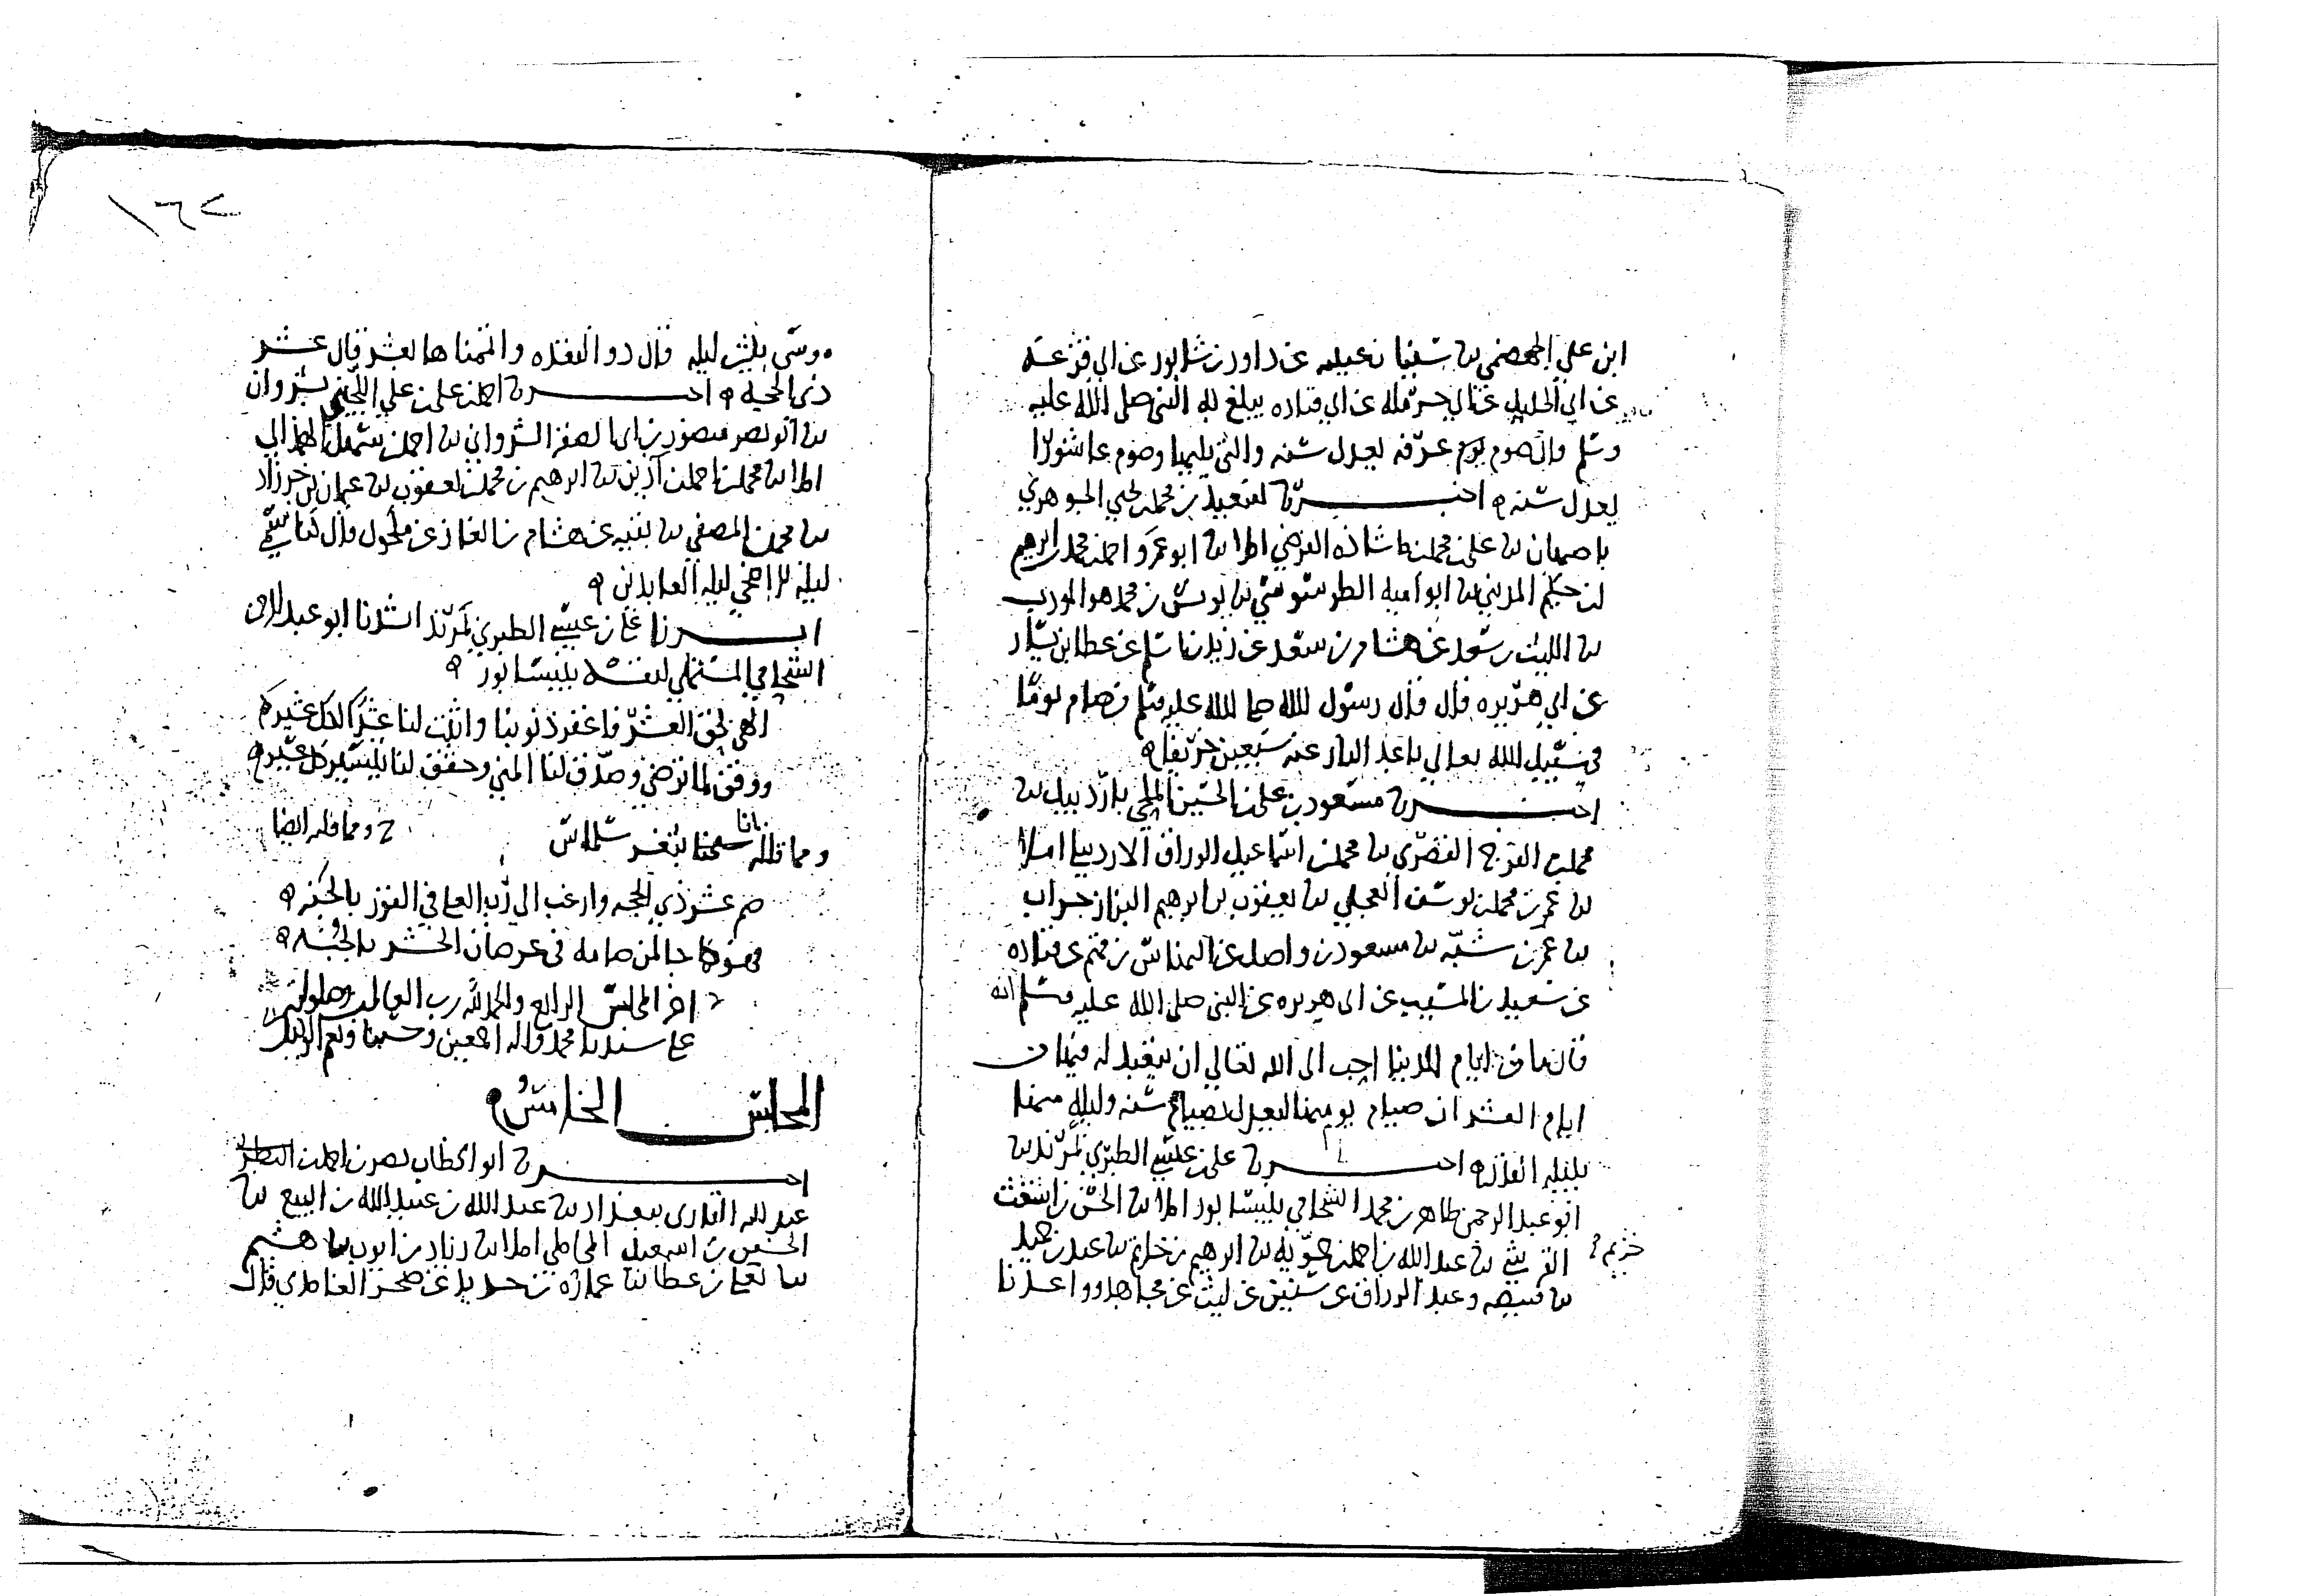 ابن علي الجهضمي ثنا سفيان بن عيينه عن داود بن شابور عن ابي قزعة
عن ابي الخليل عن ابي حرمله عن ابي قتاده يبلغ به النبي صلى الله عليه
وسلم وان صوم يوم عرفه يعدل سنه والتي يليها وصوم عاشورا
يعدل سنه اخبرنا سعيد بن محمد بن يحيى الجوهري
باصبهان ثنا علي بن محمد بن ماشاذه الفرضي املا ثنا ابو عمرو احمد بن محمد بن ابرهيم
بن حكيم المديني ثنا ابو اميه الطرسوسي ثنا يونس بن محمد هو المودب
ثنا الليث بن سعد عن هشام بن سعد عن زيد بن اسلم عن عطا بن يسار
عن ابي هريره قال قال رسول الله صلى الله عليه وسلم من صام يوما
في سبيل الله تعالى باعد النار عنه سبعين خريفا
اخبرنا مسعود بن علي بن الحسين الملحي باردبيل ثنا
محمد بن الفرج القصري ثنا محمد بن اسماعيل الوراق الاردبيلي املا
ثنا عمر بن محمد بن يوسف العجلي ثنا يعقوب بن ابرهيم البزاز جراب
ثنا عمر بن شبه ثنا مسعود بن واصل عن النهاس بن قهم عن قتاده
عن سعيد بن المسيب عن ابي هريره عن النبي صلى الله عليه وسلم انه
قال ما من ايام الدنيا احب الى الله تعالى ان يتعبد له فيها من
ايام العشر ان صيام يوم منها ليعدل بصيام سنه وليله منها
بليله القدر اخبرنا علي بن عيسى الطبري بمرند ثنا
ابو عبد الرحمن طاهر بن محمد الشحامي بنيسابور املا ثنا الحسن بن اشعث
القرشي ثنا عبد الله بن احمد بن حمويه ثنا ابرهيم بن خزيم ثنا عبد بن حميد
خزيم
ثنا قبيصه وعبد الرزاق عن سفين عن ليث عن مجاهد وواعدنا
١٦٢
موسى ثلثين ليله قال ذو القعده واتممناها بعشر قال عشر
ذي الحجه اخبرنا احمد بن علي بن علي بشروان
ثنا ابو نصر منصور بن الشرواني ثنا احمد بن
املا ثنا محمد بن احمد بن اذين ثنا ابرهيم بن محمد بن يعقوب ثنا عمران بن خرزاد
ثنا محمد بن المصفى ثنا بقيه عن هشام بن الغاز عن مكحول قال كنا نسمي
ليله الاضحى ليله العابدين
اخبرنا علي بن عيسى الطبري بمرند انشدنا ابو عبد الرحمن
الشحامي المستملي لنفسه بنيسابور
الهي بحق العشر فاغفر ذنوبنا واثبت لنا عشرا لدى كل عشيره
ووفق لما ترضى وصدق لنا المنى وحقق لنا تيسير كل عسيره
ومما قاله شيخنا بثغر سلماس ومما قاله ايضا
صم عشر ذي الحجه وارغب الى رب العلى في الفوز بالجنه
فهو كما جا لمن صامه في عرصات الحشر كالجنه
اخر المجلس الرابع والحمد لله رب العالمين وصلواته
على سيدنا محمد واله اجمعين وحسبنا ونعم الوكيل
المجلس الخامس
اخبرنا ابو الخطاب نصر بن احمد بن البطر
عبد الله القاري ببغداد ثنا عبد الله بن عبيد الله بن البيع ثنا
الحسين بن اسمعيل المحاملي املا ثنا زياد بن ايوب ثنا هشيم
ثنا يعلى بن عطا ثنا عماره بن حديد عن صخر الغامدي قال